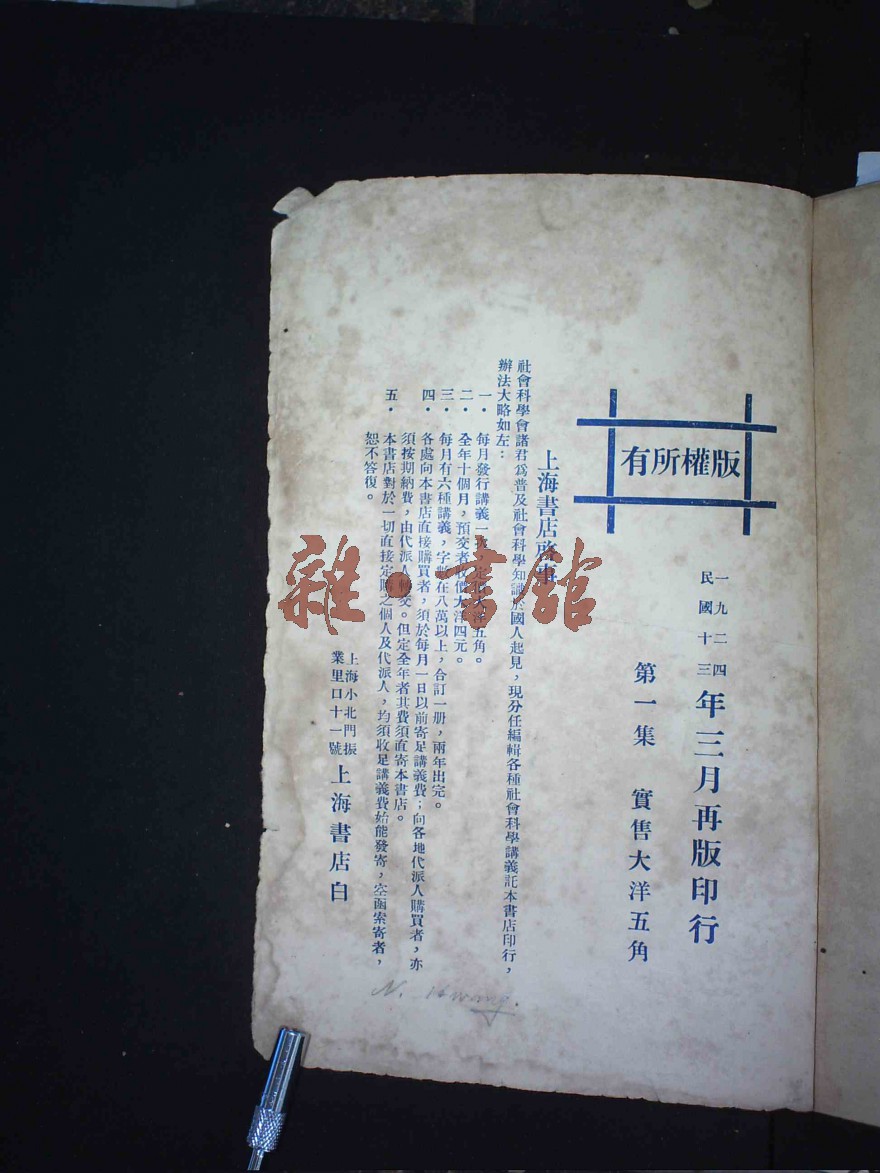 版權所有
一九二四
民國十三
年三月再版印行
第一集　實售大洋五角
上海書店啟事
社會科學會諸君爲普及社會科學知識於國人起見，現分任編輯各種社會科學講義託本書店印行，
辦法大略如左：
一·　每月發行講義一集，定價大洋五角。
二·　全年十個月，預交者收價大洋四元。
三·　每月有六種講義，字數在八萬以上，合訂一册，兩年出完。
四·　各處向本書店直接購買者，須於每月一日以前寄足講義費；向各地代派人購買者，亦
須按期納費，由代派人轉交。但定全年者其費須直寄本書店。
五·　本書店對於一切直接定購之個人及代派人，均須收足講義費始能發寄，空函索寄者，
恕不答復。
上海小北門振
業里口十一號
上海書店白
N. Hwang.
雜·書館